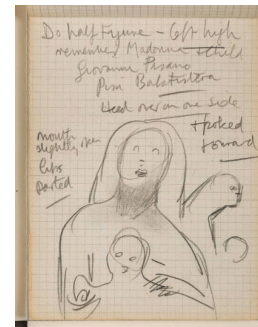 Do half Figure - left high
remember Madonna & Child
Giovanni Pisano
Pisa
Head over on one side
Hooked
forward
mouth
slightly open
lips
parted